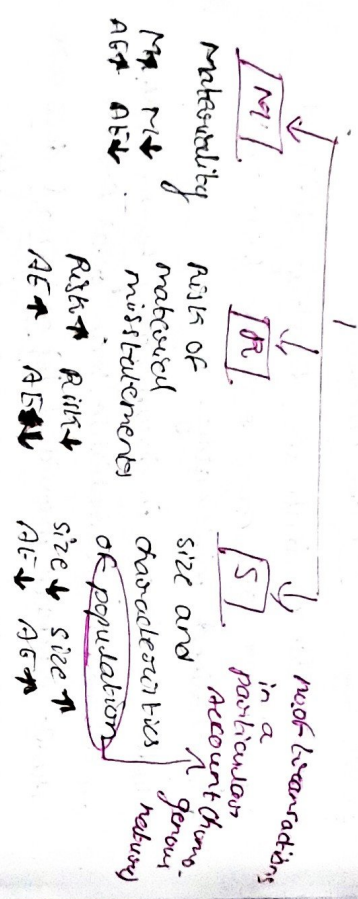 M
Materiality
M↑ M↓
AE↑ AE↓
R
Risk of
material
misstatements
Risk↑ Risk↓
AE↑ AE↓
S
size and
characteristics
of population
size↓ size↑
AE↓ AE↑
no. of transactions
in a
particular
Account (homo-
genous
nature)